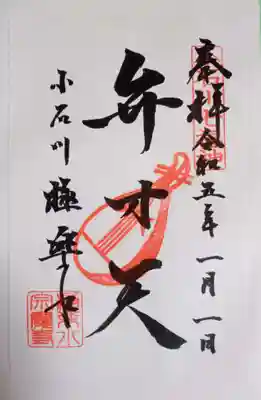 奉拝 令和五年 一月一日
弁才天
小石川 極楽水